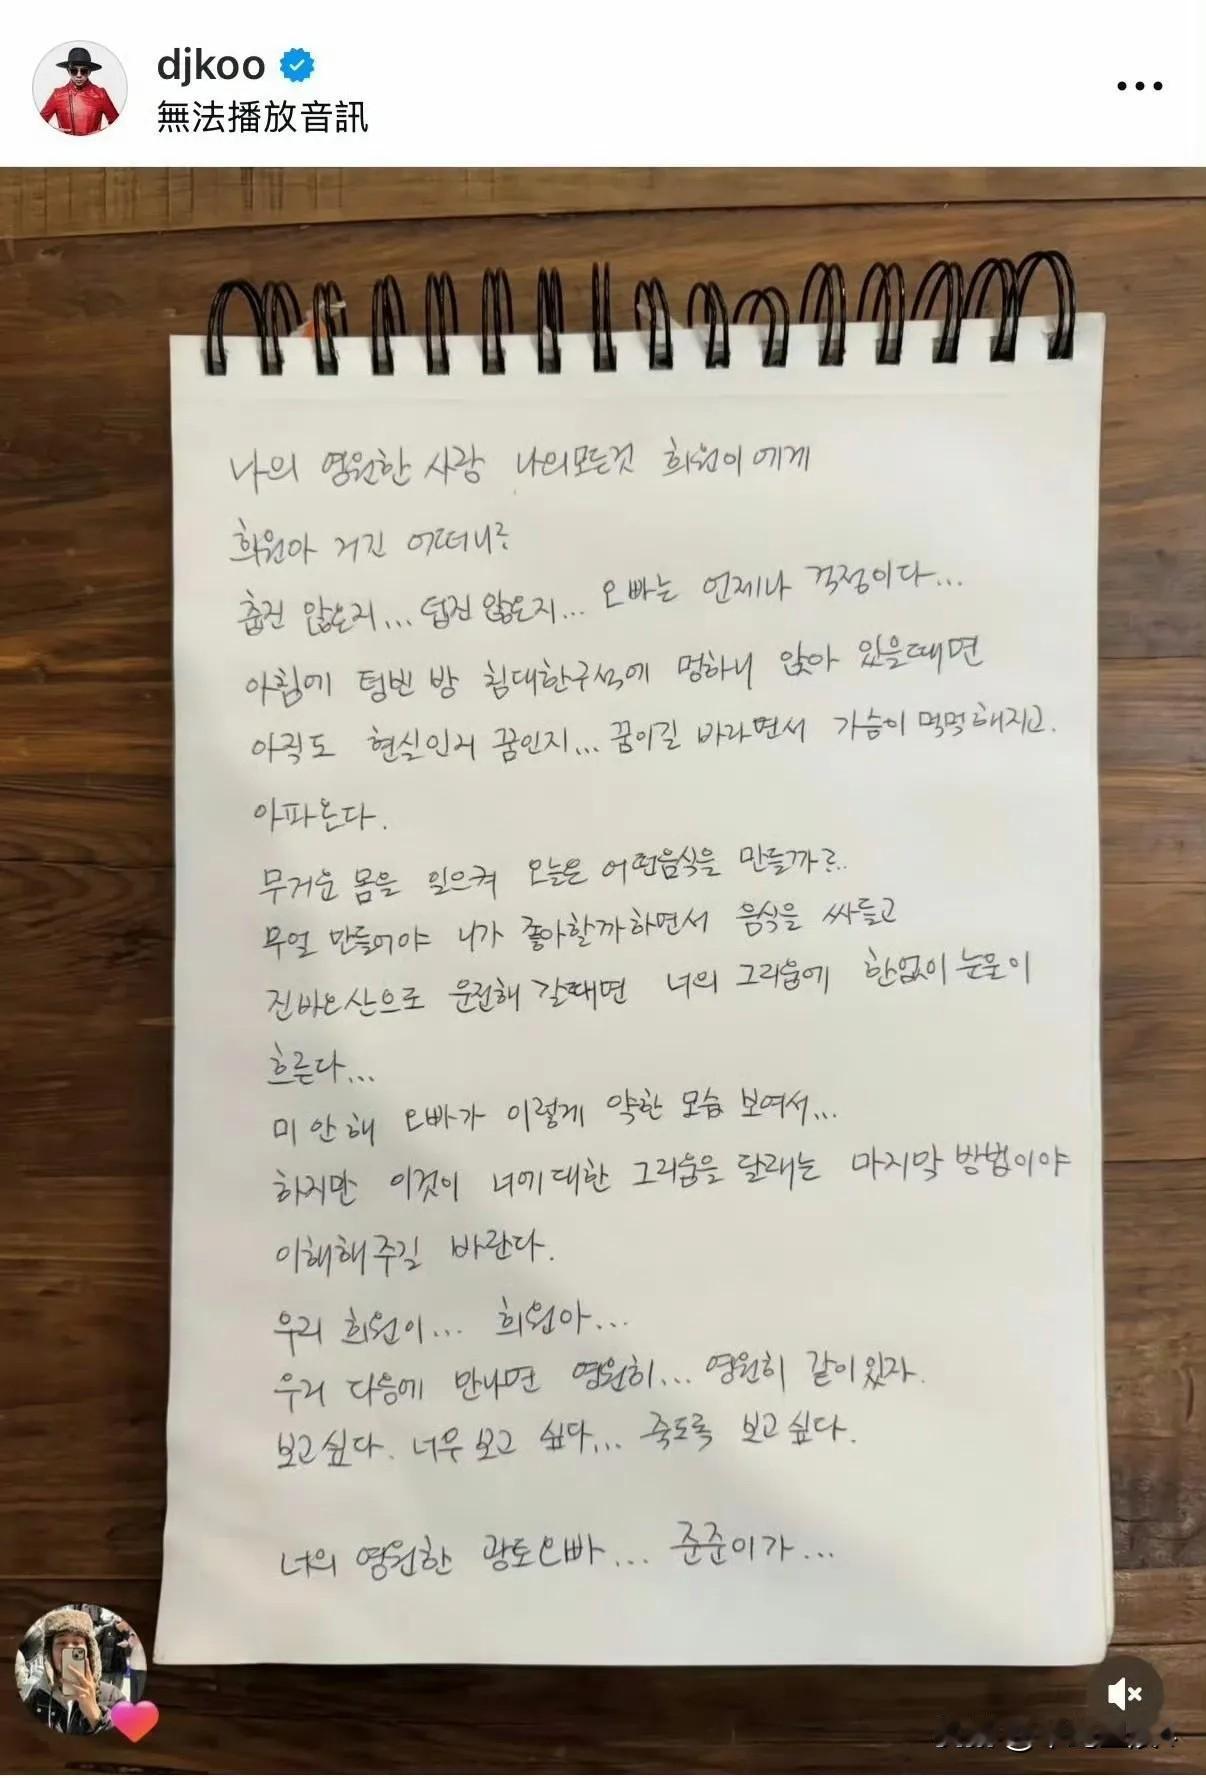 djkoo
無法播放音訊
나의 영원한 사랑 나의모든것 희원이에게
희원아 거긴 어떠니?
춥진 않은지... 덥진 않은지... 오빠는 언제나 걱정이다...
아침에 텅빈 방 침대한구석에 멍하니 앉아 있을때면
아직도 현실인지 꿈인지... 꿈이길 바라면서 가슴이 먹먹해지고.
아파온다.
무거운 몸을 일으켜 오늘은 어떤음식을 만들까?..
무얼 만들어야 니가 좋아할까하면서 음식을 싸들고
진바오산으로 운전해 갈때면 너의 그리움에 한없이 눈물이
흐른다...
미안해 오빠가 이렇게 약한 모습 보여서...
하지만 이것이 너에대한 그리움을 달래는 마지막 방법이야
이해해주길 바란다.
우리 희원이... 희원아...
우리 다음에 만나면 영원히... 영원히 같이있자.
보고싶다. 너무 보고 싶다... 죽도록 보고싶다.
너의 영원한 광토오빠... 준준이가...